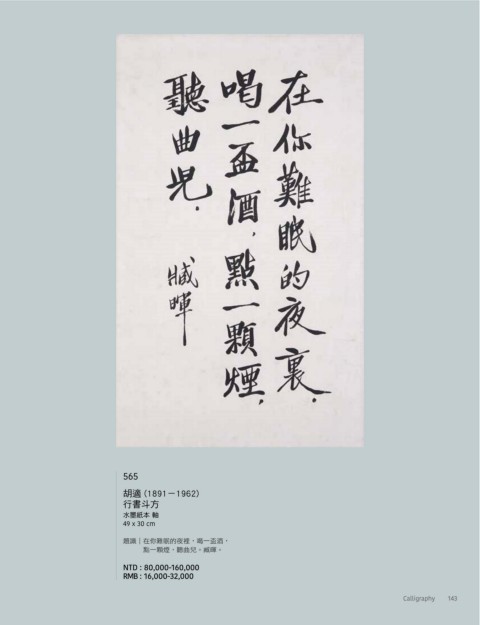 在你難眠的夜裏.
喝一盃酒,點一顆煙,
聽曲兒.
臧暉
565
胡適 (1891－1962)
行書斗方
水墨紙本 軸
49 x 30 cm
題識｜在你難眠的夜裡，喝一盃酒，
點一顆煙，聽曲兒。臧暉。
NTD : 80,000-160,000
RMB : 16,000-32,000
Calligraphy 143